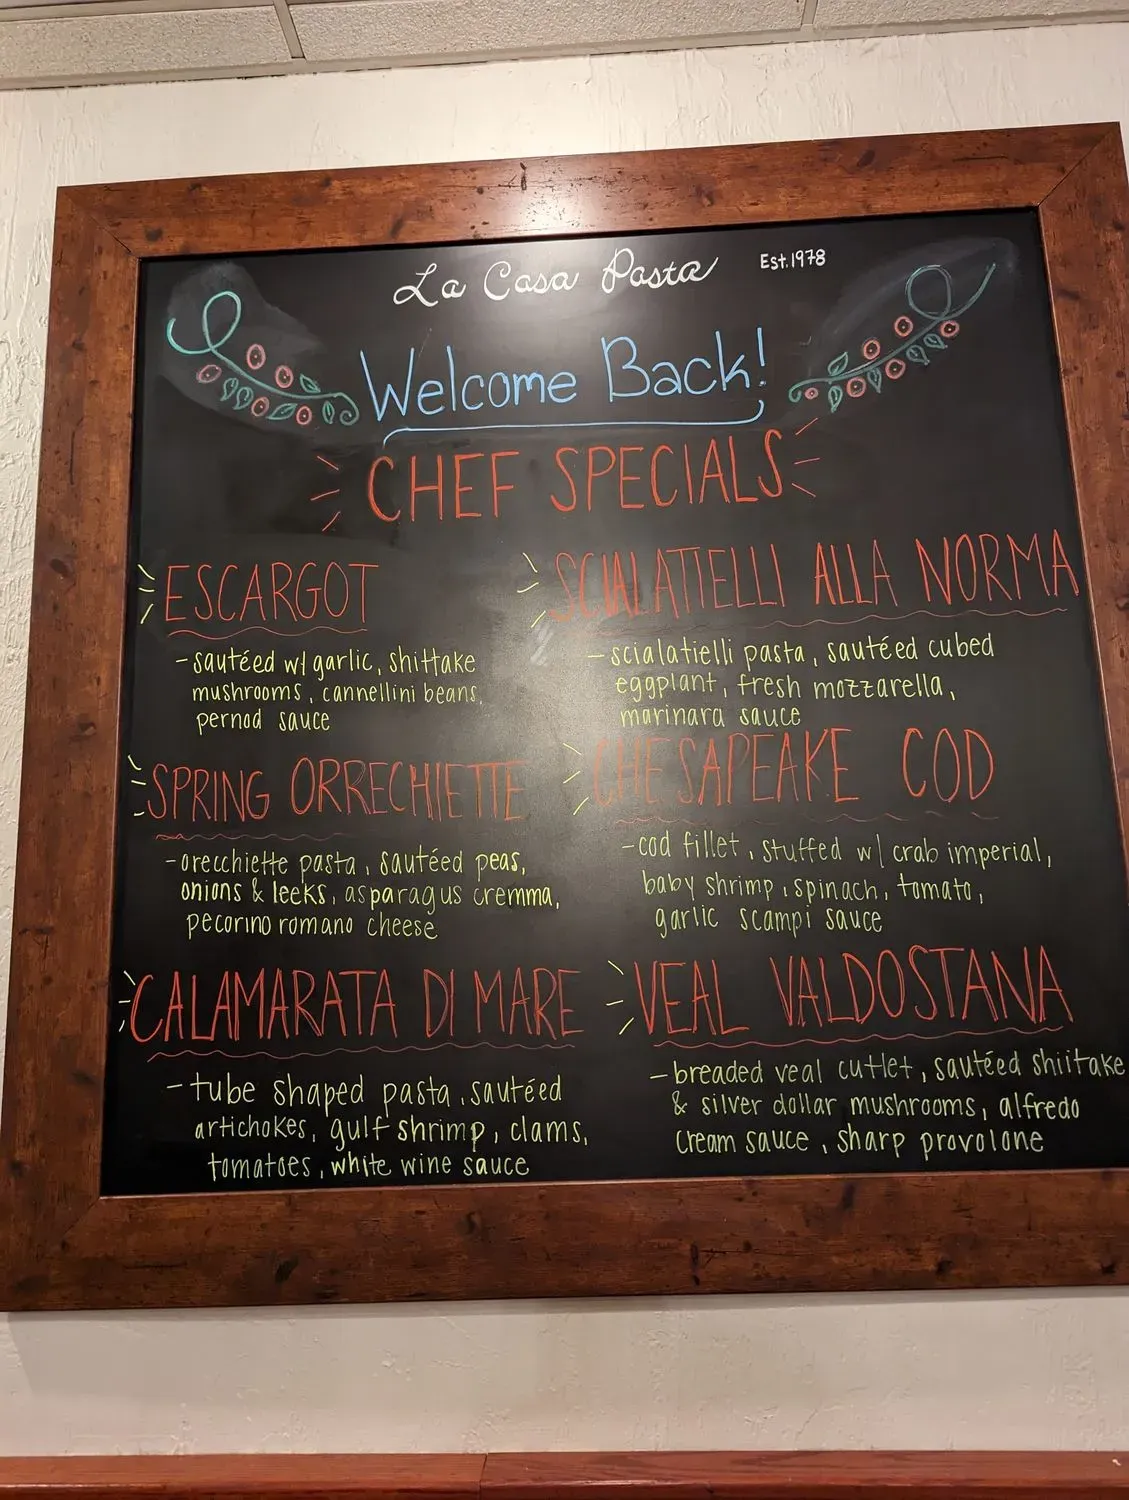 La Casa Pasta Est. 1978
Welcome Back!
CHEF SPECIALS
ESCARGOT
- sautéed w/ garlic, shittake
mushrooms, cannellini beans,
pernod sauce
SPRING ORRECHIETTE
- orecchiette pasta, sautéed peas,
onions & leeks, asparagus cremma,
pecorino romano cheese
CALAMARATA DI MARE
- tube shaped pasta, sautéed
artichokes, gulf shrimp, clams,
tomatoes, white wine sauce
SCIALATIELLI ALLA NORMA
- scialatielli pasta, sautéed cubed
eggplant, fresh mozzarella,
marinara sauce
CHESAPEAKE COD
- cod fillet, stuffed w/ crab imperial,
baby shrimp, spinach, tomato,
garlic scampi sauce
VEAL VALDOSTANA
- breaded veal cutlet, sautéed shiitake
& silver dollar mushrooms, alfredo
cream sauce, sharp provolone